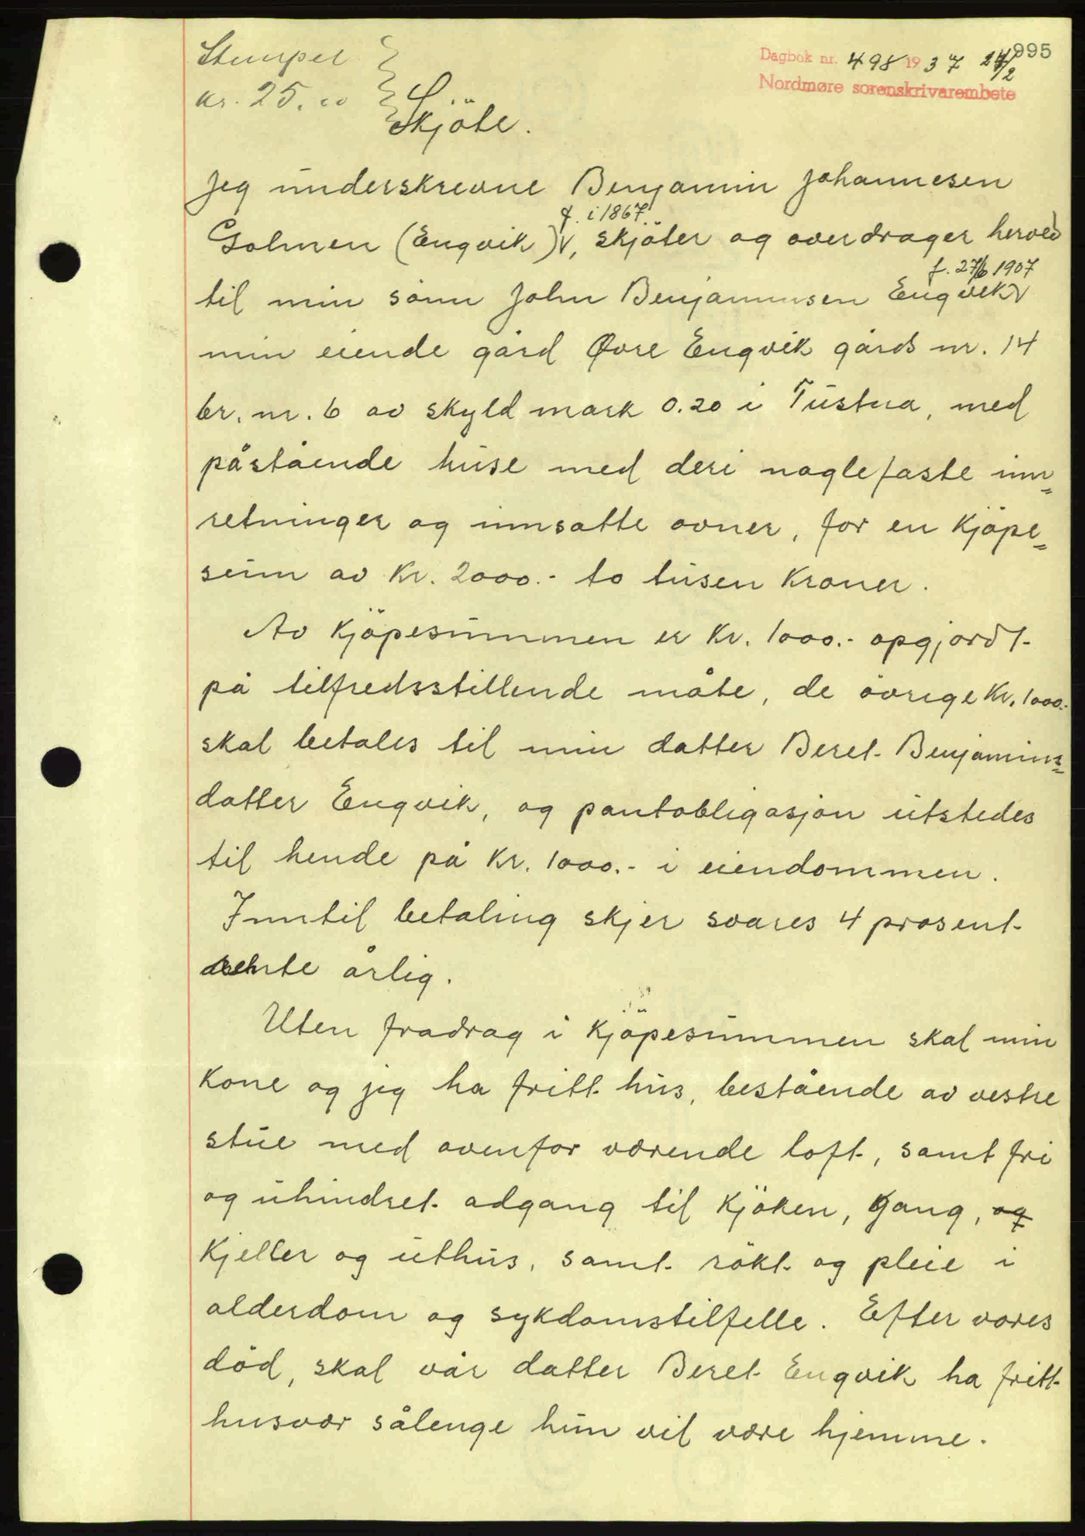 Stempel
kr. 25.00
Dagbok nr. 498 1937 24/2
995
Nordmøre sorenskrivarembete
Skjöte.
Jeg underskrevne Benjamin Johannesen
f. i 1867
Golmen (Engvik) V, skjöter og overdrager herved
f. 27/6 1907
til min sönn John Benjaminsen Engvik V
min eiende gård Øvre Engvik gårds nr. 14
br. nr. 6 av skyld mark 0.20 i Tustna, med
påstående huse med deri naglefaste inn=
retninger og innsatte ovner, for en kjöpe=
seum av Kr. 2000.- to tusen Kroner.
Av Kjöpesummen er Kr. 1000.- opgjordt
på tilfredsstillende måte, de övrige Kr. 1000.-
skal betales til min datter Beret Benjamins=
datter Engvik, og pantobligasjon utstedes
til hende på Kr. 1000.- i eiendommen.
Inntil betaling skjer svares 4 prosent
rente årlig.
Uten fradrag i Kjöpesummen skal min
Kone og jeg ha fritt hus, bestående av vestre
stue med ovenfor værende loft, samt fri
og uhindret adgang til Kjöken, gang, og
Kjeller og uthus, samt rökt og pleie i
alderdom og sykdomstilfelle. Efter vores
död, skal vår datter Beret Engvik ha fritt
husvær sålenge hun vil være hjemme.